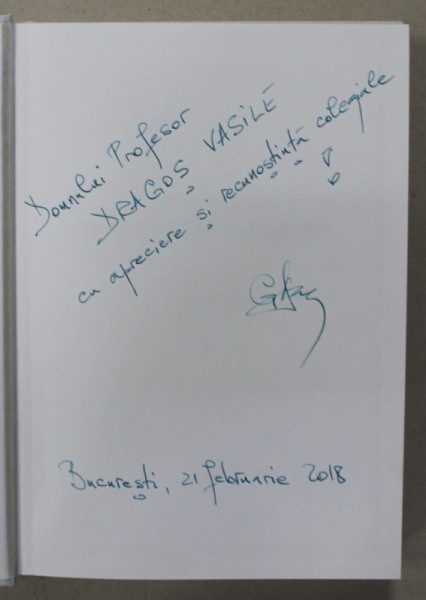 Domnului Profesor
DRAGOȘ VASILE
cu apreciere și recunoștință colegiale !
București, 21 februarie 2018